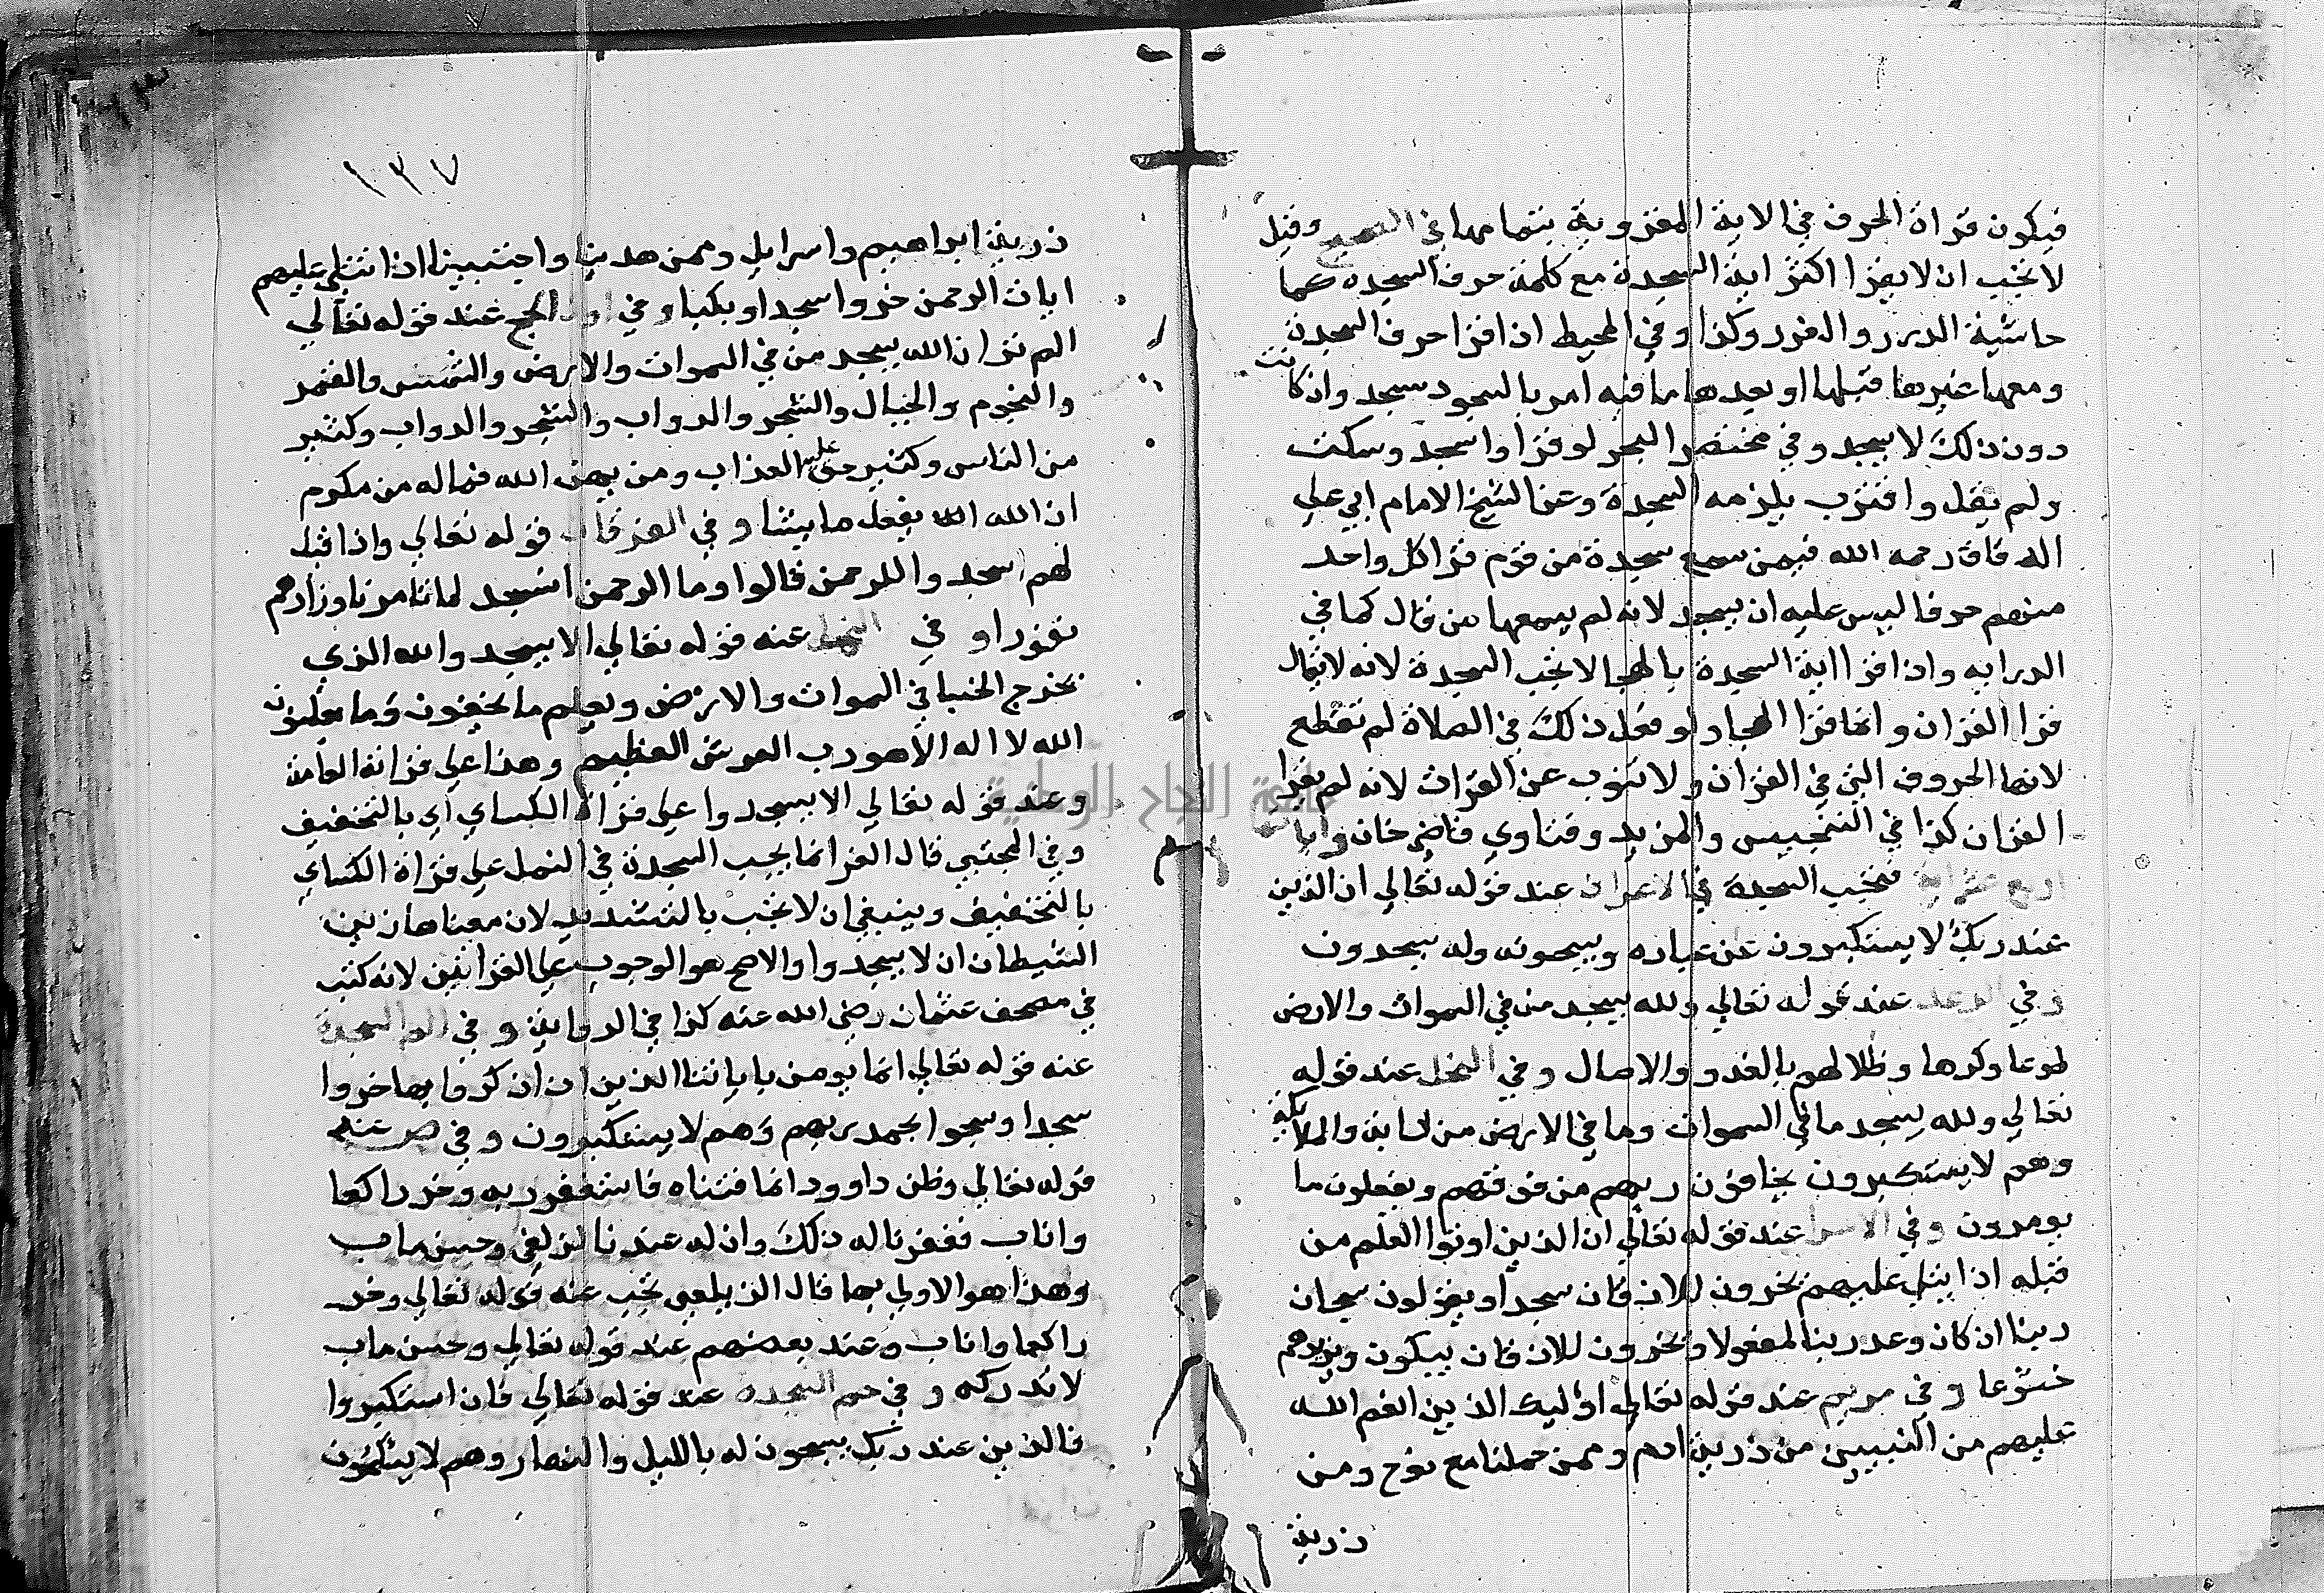 فيكون قراة الحرف في الاية المقروية بتمامها في الصحيح وقيل
لا تجب ان لا يقرا اكثر اية السجدة مع كلمة حرف السجدة كما
حاشية الدرر والغرر وكذا وفي المحيط اذا قرا حرف السجدة
ومعها غيرها قبلها او بعدها ما فيه امر بالسجود سجد وان كانت
دون ذلك لا يسجد وفي مختصر البحر لو قرا واسجد وسكت
ولم يقل واقترب يلزمه السجدة وعن الشيخ الامام ابي علي
الدقاق رحمه الله فيمن سمع سجدة من قوم قرا كل واحد
منهم حرفا ليس عليه ان يسجد لانه لم يسمعها من قال كما في
الدرايه واذا قرا اية السجدة بالهجا لا تجب السجدة لانه لا يقال
قرا القران وانما قرا الهجا ولو فعل ذلك في الصلاة لم تقطع
لانها الحروف التي في القران ولا تنوب عن القراة لانه لم يقرا
القران كذا في التجنيس والمزيد وفتاوي قاضي خان وايا
اربع عشر اية فتجب السجدة في الاعراف عند قوله تعالي ان الذين
عند ربك لا يستكبرون عن عبادته ويسبحونه وله يسجدون
وفي الرعد عند قوله تعالي ولله يسجد من في السموات والارض
طوعا وكرها وظلالهم بالغدو والاصال وفي النحل عند قوله
تعالي ولله يسجد ما في السموات وما في الارض من دابة والملائكة
وهم لا يستكبرون يخافون ربهم من فوقهم ويفعلون ما
يومرون وفي الاسرا عند قوله تعالي ان الذين اوتوا العلم من
قبله اذا يتلي عليهم يخرون للاذقان سجدا ويقولون سبحان
ربنا ان كان وعد ربنا لمفعولا ويخرون للاذقان يبكون ويزيدهم
خشوعا وفي مريم عند قوله تعالي اوليك الذين انعم الله
عليهم من النبيين من ذرية ادم وممن حملنا مع نوح ومن
ذرية
١٣٧
ذرية ابراهيم واسرايل وممن هدينا واجتبينا اذا تتلي عليهم
ايات الرحمن خروا سجدا وبكيا وفي اول الحج عند قوله تعالي
الم تر ان الله يسجد من في السموات والارض والشمس والقمر
والنجوم والجبال والشجر والدواب والشجر والدواب وكثير
من الناس وكثير حق عليه العذاب ومن يهن الله فماله من مكرم
ان الله الله يفعل ما يشا وفي الفرقان قوله تعالي واذا قيل
لهم اسجدوا للرحمن قالوا وما الرحمن انسجد لما تامرنا وزادهم
نفورا وفي النمل عنه قوله تعالي الا يسجدوا لله الذي
يخرج الخبا في السموات والارض ويعلم ما يخفون وما يعلنون
الله لا اله الا هو رب العرش العظيم وهذا علي قراة العامة
وعند قوله تعالي الا يسجدوا علي قراة الكساي اي بالتخفيف
وفي المجتبي قال الفرا انما يجب السجدة في النمل علي قراة الكساي
بالتخفيف وينبغي ان لا تجب بالتشديد لان معناها زين
الشيطان ان لا يسجدوا والاصح هو الوجوب علي القراتين لانه كتب
في مصحف عثمان رضي الله عنه كذا في الدراية وفي الم السجدة
عنه قوله تعالي انما يومن باياتنا الذين اذا ذكروا بها خروا
سجدا وسبحوا بحمد ربهم وهم لا يستكبرون وفي ص عند
قوله تعالي وظن داوود انما فتناه فاستغفر ربه وخر راكعا
واناب فغفرنا له ذلك وان له عندنا لزلفي وحسن ماب
وهذا هو الاولي مما قال الزيلعي تجب عنه قوله تعالي وخر
راكعا واناب وعند بعضهم عند قوله تعالي وحسن ماب
لاندركه وفي حم السجده عند قوله تعالي فان استكبروا
فالذين عند ربك يسبحون له بالليل والنهار وهم لا يسئمون
جامعة النجاح الوطنية